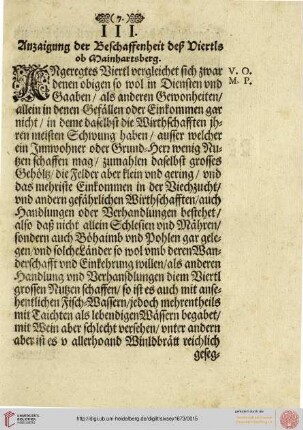 (7.)
III.
Anzaigung der Beschaffenheit deß Viertls
ob Mainhartsberg.
ANgeregtes Viertl vergleichet sich zwar
V. O.
M. P.
denen obigen so wol in Diensten vnd
Gaaben / als anderen Gewonheiten /
allein in denen Gefällen oder Einkommen gar
nicht / in deme daselbst die Wirthschafften jh-
ren meisten Schwung haben / ausser welcher
ein Innwohner oder Grund-Herr wenig Nu-
tzen schaffen mag / zumahlen daselbst grosses
Gehöltz / die Felder aber klein vnd gering / vnd
das mehriste Einkommen in der Viechzucht /
vnd andern gefährlichen Wirthschafften / auch
Handlungen oder Verhandlungen bestehet /
also daß nicht allein Schlesien vnd Mähren /
sondern auch Böhaimb vnd Pohlen gar gele-
gen / vnd solche Länder so wol vmb deren Wan-
derschafft vnd Einkehrung willen / als anderen
Handlung vnd Verhandlungen diem Viertl
grossen Nutzen schaffen / so ist es auch mit anse-
hentlichen Fisch-Wassern / jedoch mehrentheils
mit Taichten als lebendigen Wässern begabet /
mit Wein aber schlecht versehen / vnter andern
aber ist es v allerhoand Winldbrätt reichlich
geseg-
http://digi.ub.uni-heidelberg.de/diglit/leksey1673/0015